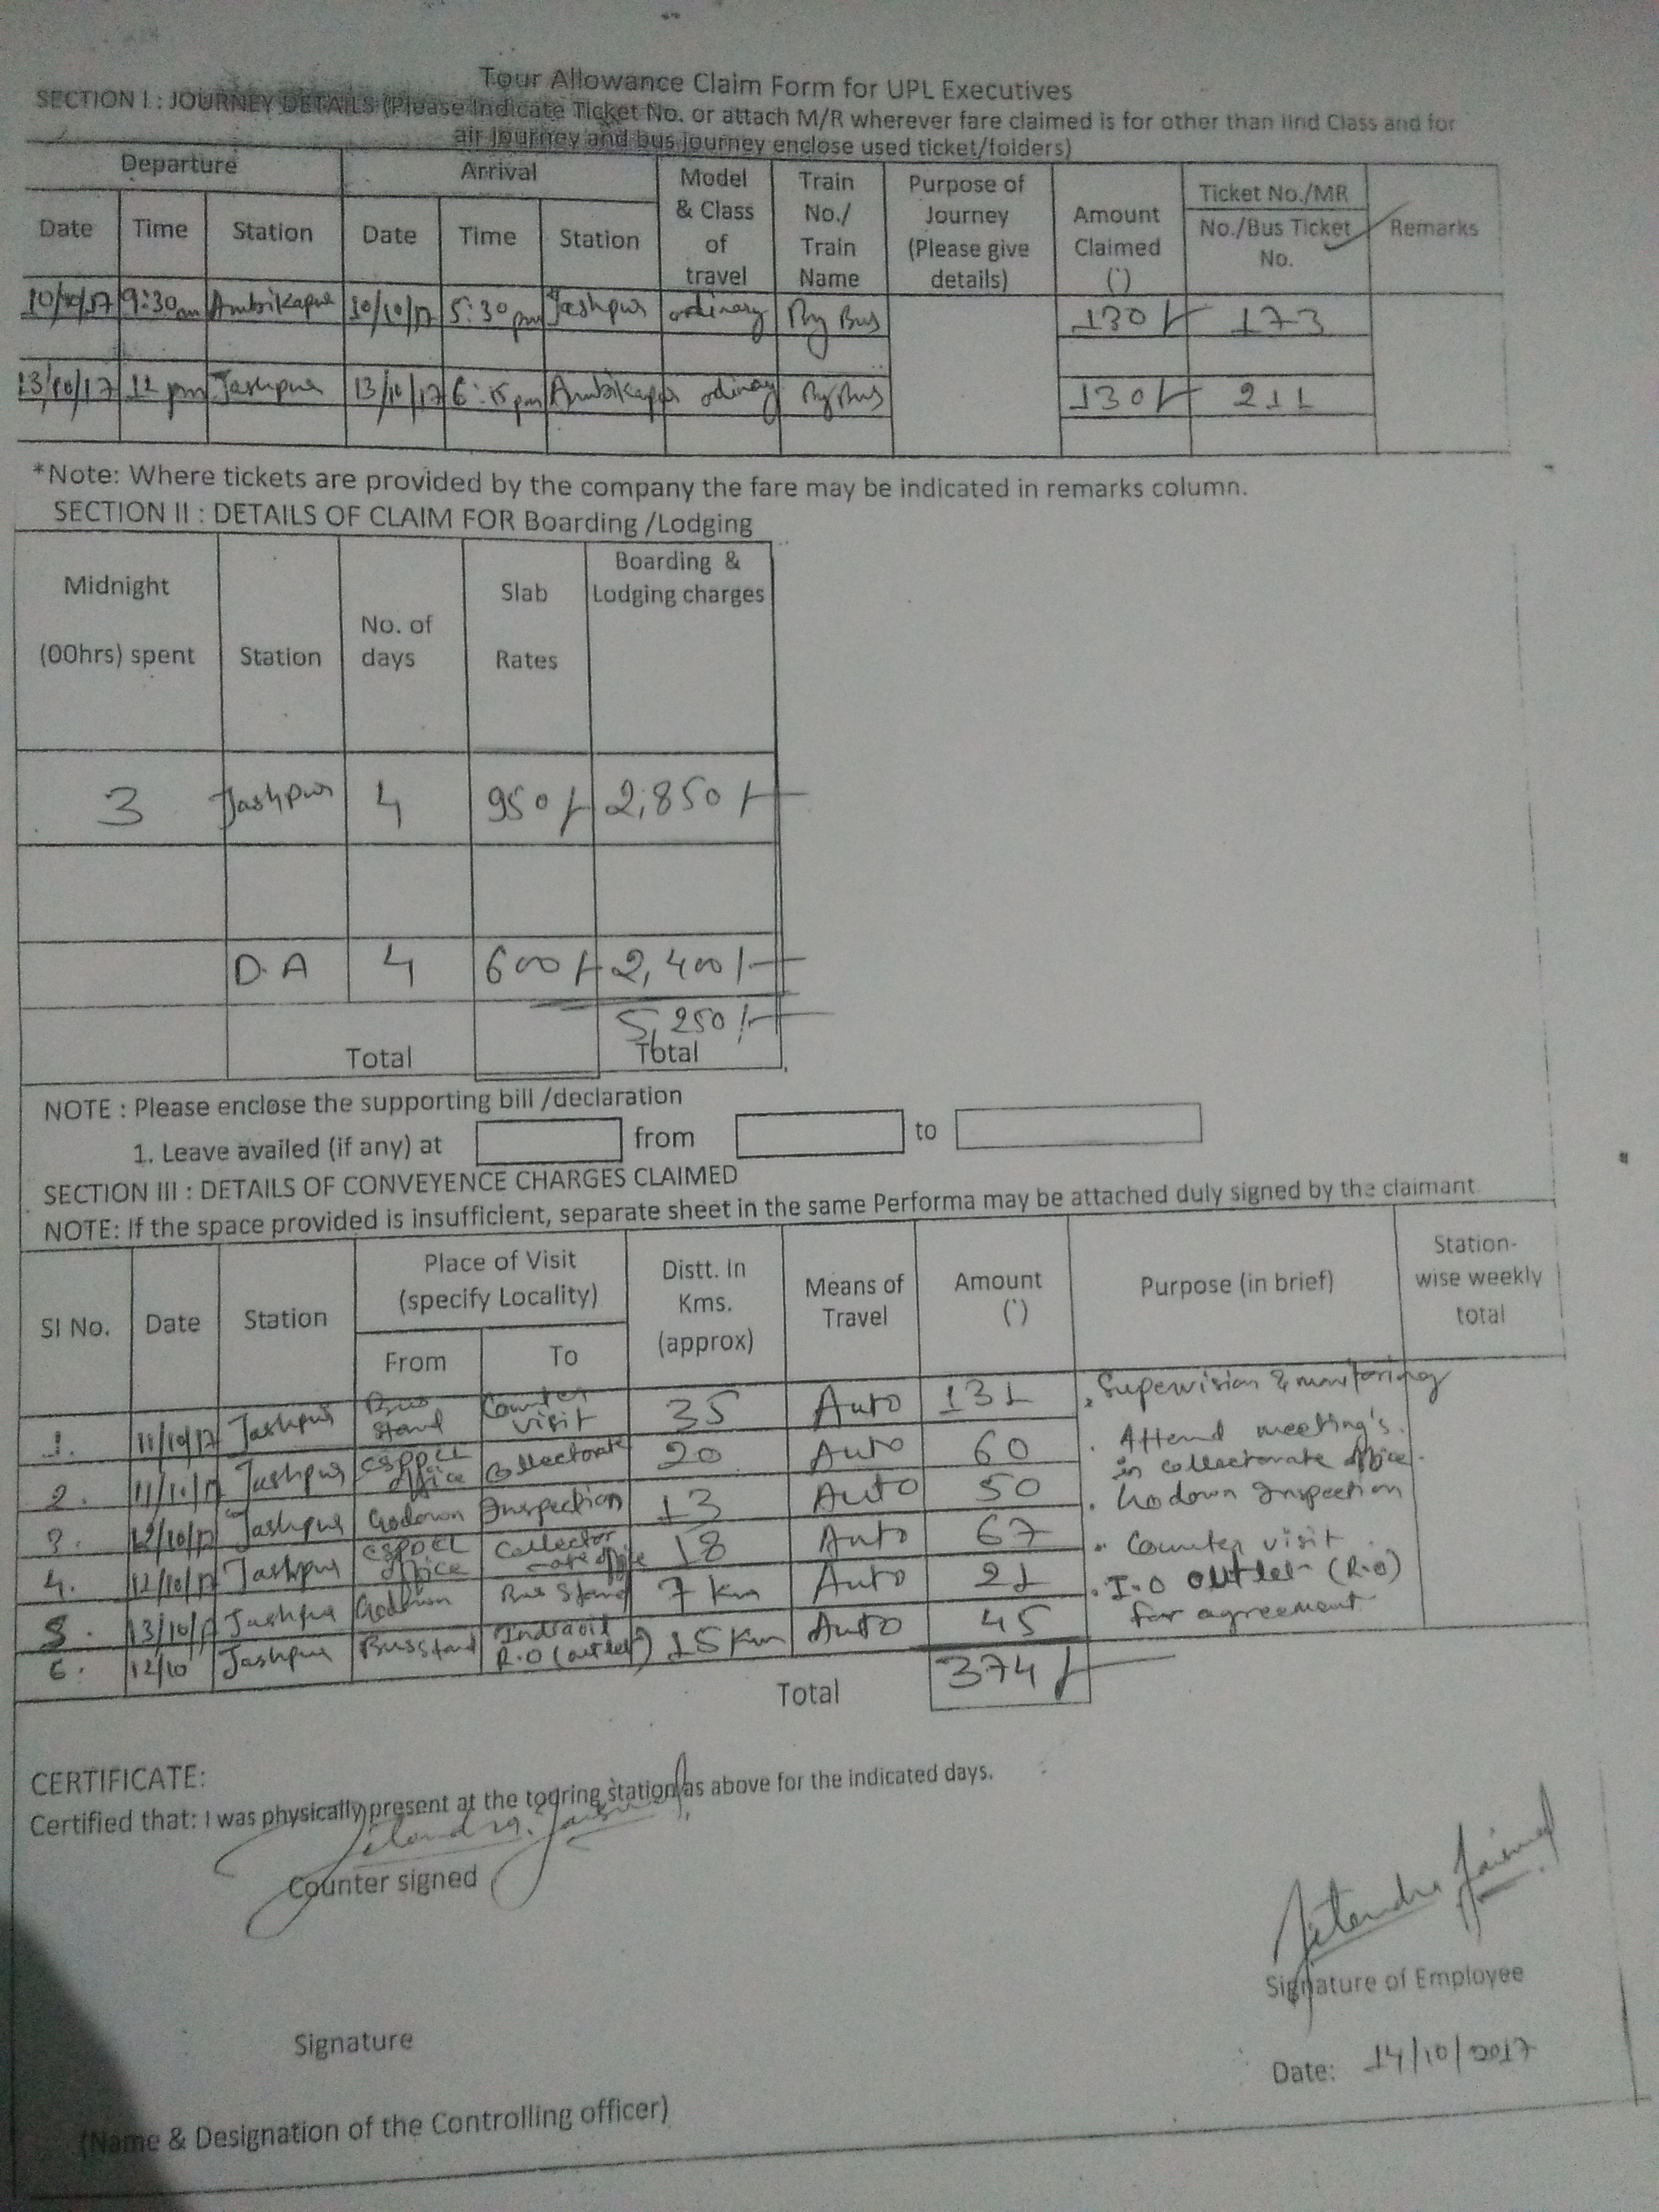 Tour Allowance Claim Form for UPL Executives
SECTION I : JOURNEY DETAILS (Please Indicate Ticket No. or attach M/R wherever fare claimed is for other than IInd Class and for
air journey and bus journey enclose used ticket/folders)
Departure Arrival Model & Class of travel Train No./ Train Name Purpose of Journey (Please give details) Amount Claimed (`) Ticket No./MR No./Bus Ticket No. Remarks
Date Time Station Date Time Station
10/10/17 9:30am Ambikapur 10/10/17 5:30 pm Jashpur ordinary By Bus 130/- 173
13/10/17 12 pm Jashpur 13/10/17 6:15 pm Ambikapur ordinary By Bus 130/- 211
*Note: Where tickets are provided by the company the fare may be indicated in remarks column.
SECTION II : DETAILS OF CLAIM FOR Boarding /Lodging
Midnight (00hrs) spent Station No. of days Slab Rates Boarding & Lodging charges
3 Jashpur 4 950/- 2,850/-
D.A 4 600/- 2,400/-
5,250/-
Total Total
NOTE : Please enclose the supporting bill /declaration
1. Leave availed (if any) at from to
SECTION III : DETAILS OF CONVEYENCE CHARGES CLAIMED
NOTE: If the space provided is insufficient, separate sheet in the same Performa may be attached duly signed by the claimant
Sl No. Date Station Place of Visit (specify Locality) Distt. In Kms. (approx) Means of Travel Amount (`) Purpose (in brief) Station-wise weekly total
From To
1. 11/10/17 Jashpur Bus stand Counter visit 35 Auto 131 . Supervision & monitoring
2. 11/10/17 Jashpur office Collectorate 20 Auto 60 . Attend meeting's in collectorate office.
3. 12/10/17 Jashpur Godown Inspection 13 Auto 50 . Godown Inspection
4. 12/10/17 Jashpur office Collectorate office 18 Auto 67 . Counter visit
5. 13/10/17 Jashpur Godown Bus Stand 7 km Auto 21 . I.O outlet (R.O) for agreement
6. 12/10 Jashpur Bus stand R.O (outlet) 15 Km Auto 45
Total 374/-
CERTIFICATE:
Certified that: I was physically present at the touring station as above for the indicated days.
Jitendra Jaiswal
Counter signed
Jitendra Jaiswal
Signature of Employee
Signature
Date: 14/10/2017
(Name & Designation of the Controlling officer)